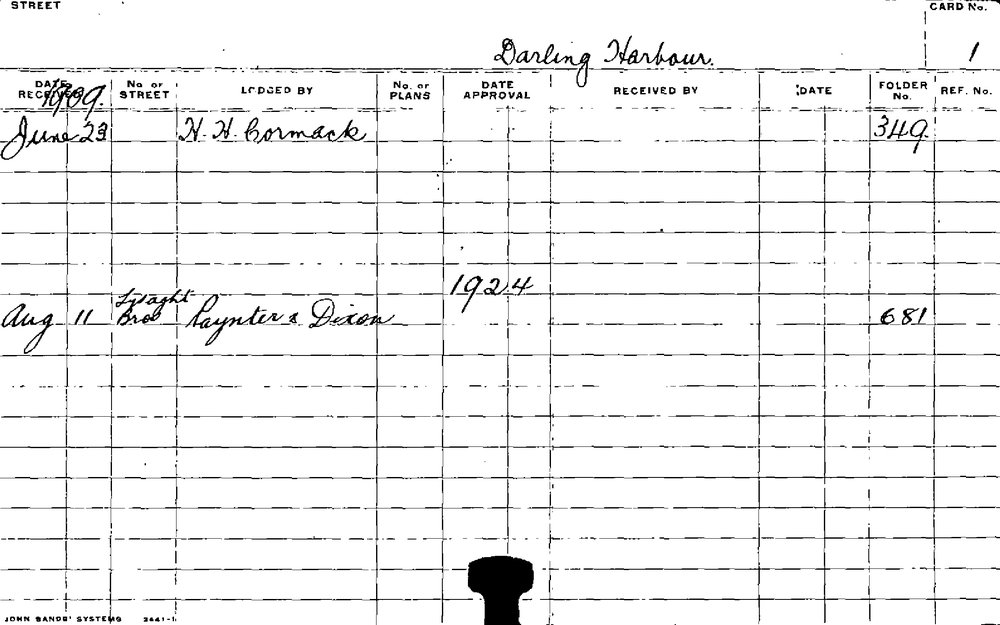 STREET
CARD No.
Darling Harbour.
1
DATE RECEIVED No. OF STREET LODGED BY No. OF PLANS DATE APPROVAL RECEIVED BY DATE FOLDER No. REF. No.
1909.
June 23 H. H. Cormack 349
1924
Lysaght
Aug 11 Bros Paynter & Dixon 681
JOHN SANDS' SYSTEMS 2641-1